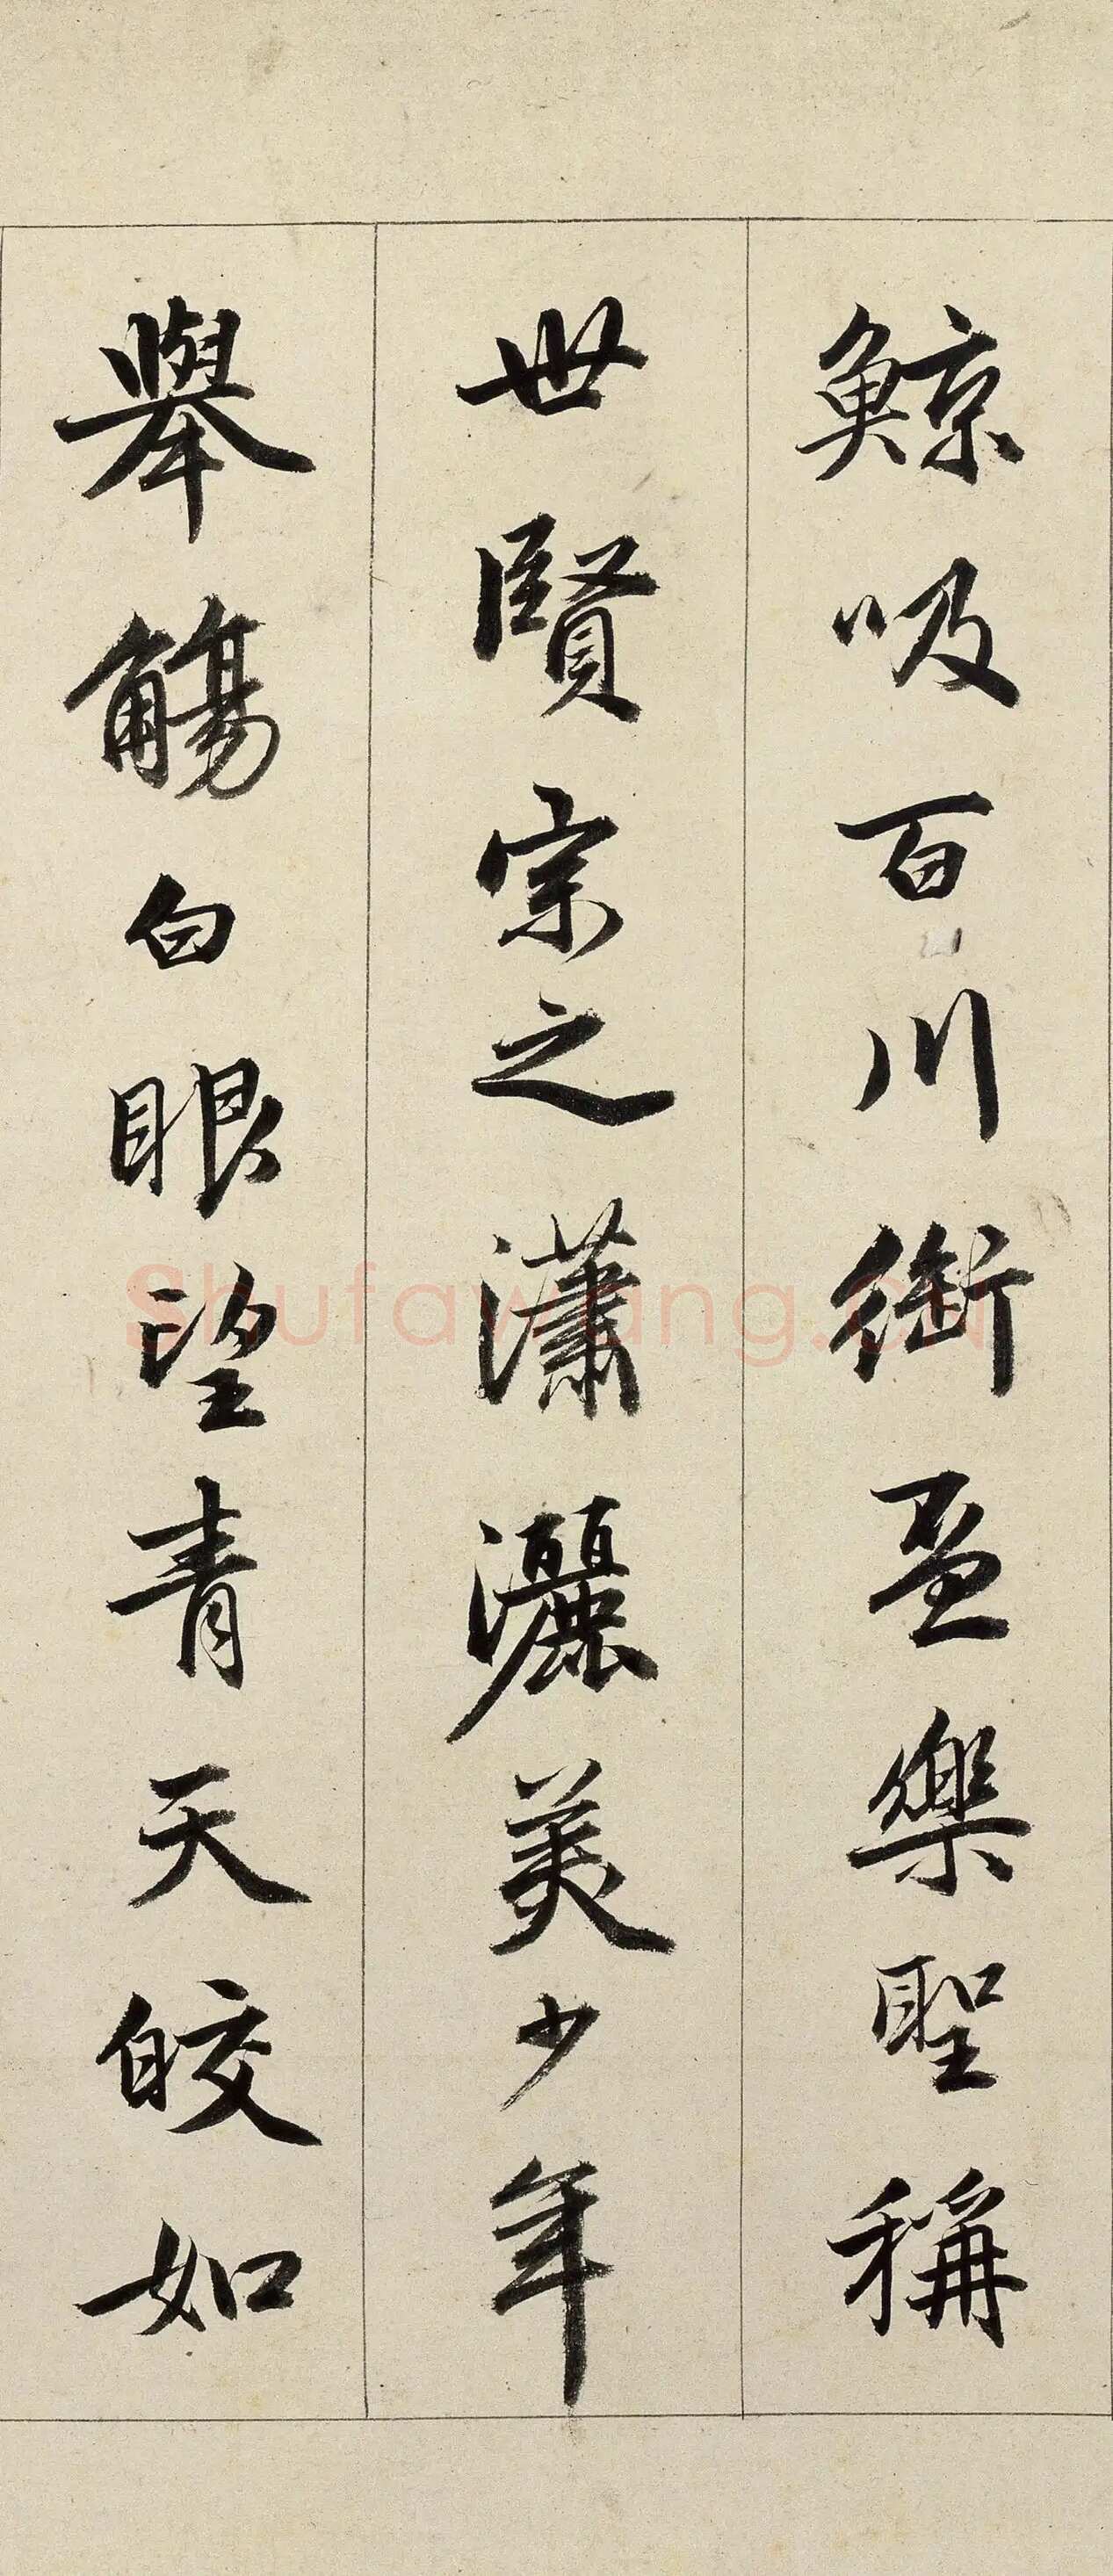 鯨吸百川銜盃樂聖稱
世賢宗之瀟灑美少年
舉觴白眼望青天皎如
shufawang.cn